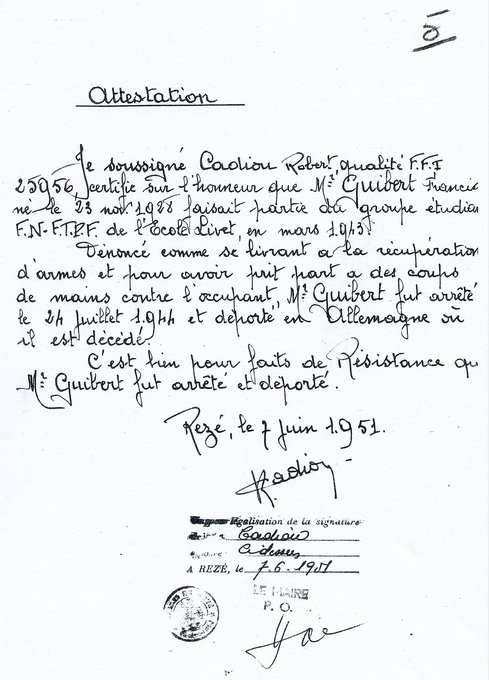 5
Attestation
Je soussigné Cadiou Robert, qualité F.F.I
25956, certifie sur l'honneur que Mr. Guibert Francis
né le 23 nov 1928 faisait partie du groupe étudian
F.N-F.T.P.F. de l'Ecole Livet, en mars 1943.
Dénoncé comme se livrant a la récupération
d'armes et pour avoir prit part a des coups
de mains contre l'occupant, Mr. Guibert fut arrêté
le 24 juillet 1944 et déporté en Allemagne où
il est décédé.
C'est bien pour faits de Résistance qu
Mr. Guibert fut arrêté et déporté.
Rezé, le 7 juin 1951.
Cadiou
légalisation de la signature
de M Cadiou
ci-dessus
A REZÉ, le 7.6.1951
LE MAIRE
P. O.